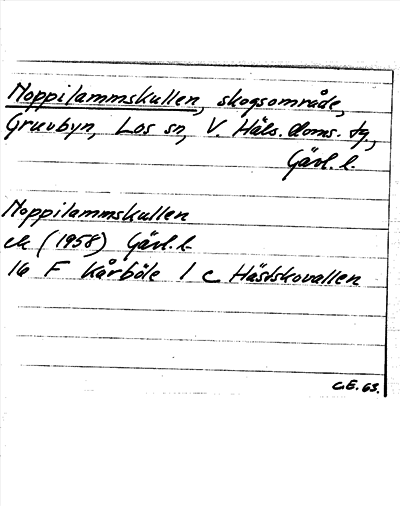 Noppilammskullen, skogsområde,
Gruvbyn, Los sn, V. Häls. doms. tg,
Gävl. l.
Noppilammskullen
ek (1958) Gävl. l.
16 F Kårböle 1 c Hästskovallen
C.E. 63.